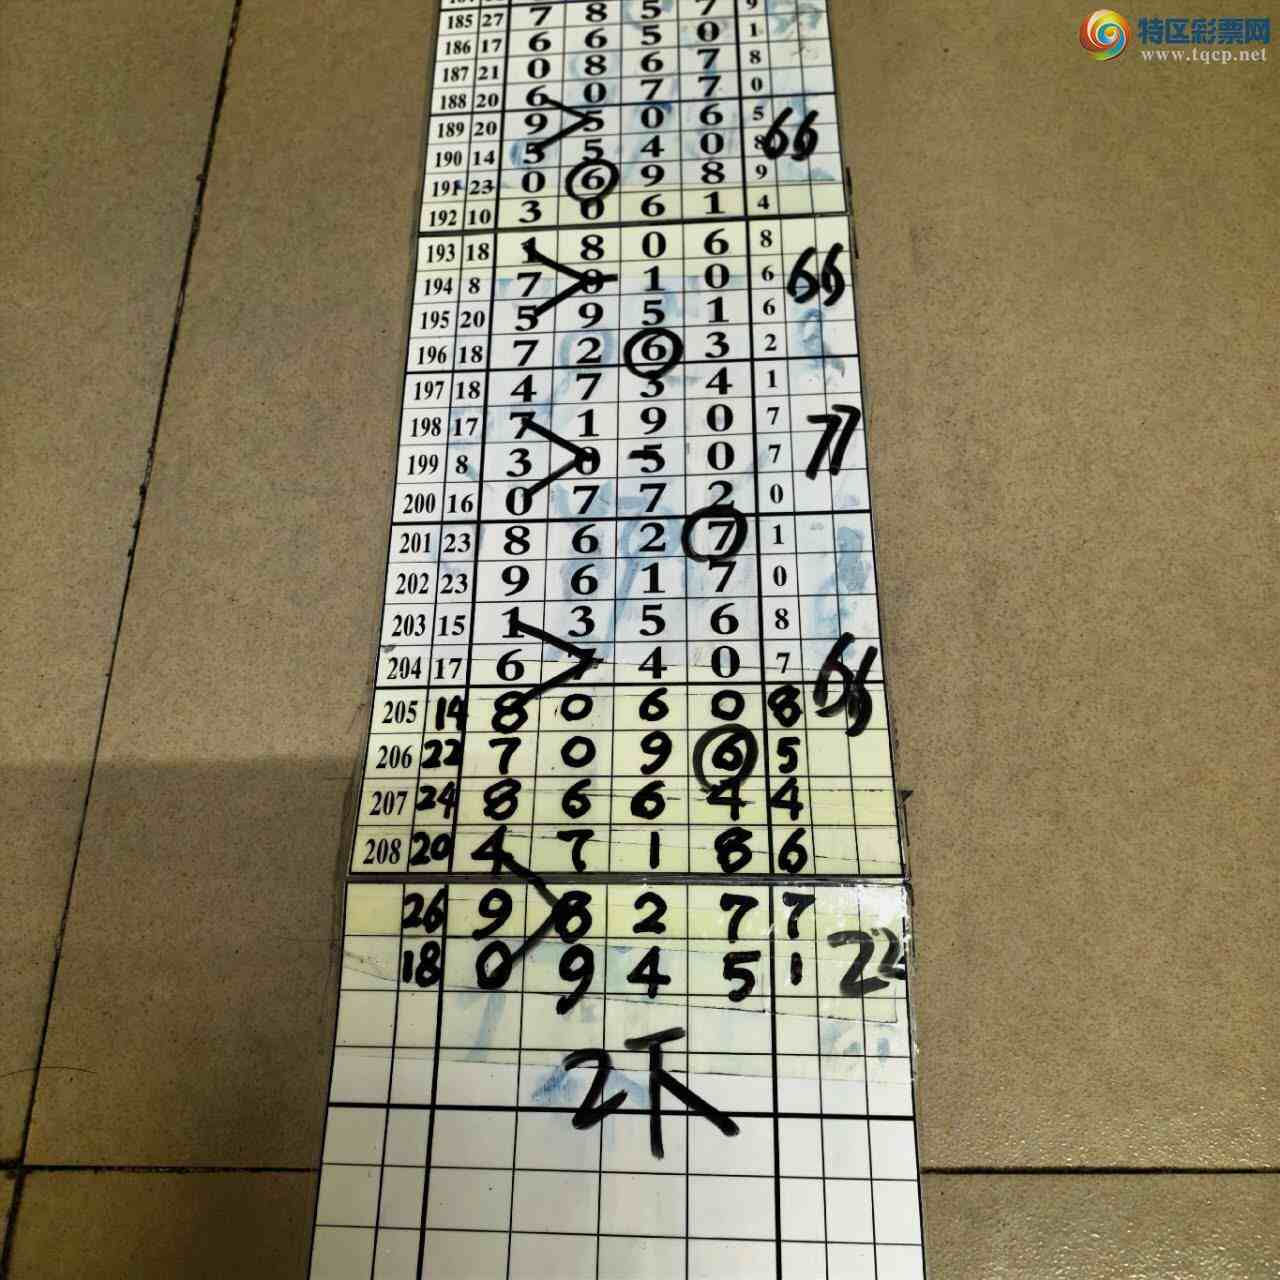 特区彩票网
www.tqcp.net
185 27 7 8 5 7 9
186 17 6 6 5 0 1
187 21 0 8 6 7 8
188 20 6 0 7 7 0
189 20 9 5 0 6 5
190 14 5 5 4 0 8 66
191 23 0 6 9 8 9
192 10 3 0 6 1 4
193 18 1 8 0 6 8
194 8 7 0 1 0 6 66
195 20 5 9 5 1 6
196 18 7 2 6 3 2
197 18 4 7 3 4 1
198 17 7 1 9 0 7
199 8 3 0 5 0 7 77
200 16 0 7 7 2 0
201 23 8 6 2 7 1
202 23 9 6 1 7 0
203 15 1 3 5 6 8
204 17 6 7 4 0 7 66
205 14 8 0 6 0 8
206 22 7 0 9 6 5
207 24 8 6 6 4 4
208 20 4 7 1 8 6
26 9 8 2 7 7
18 0 9 4 5 1 22
2下